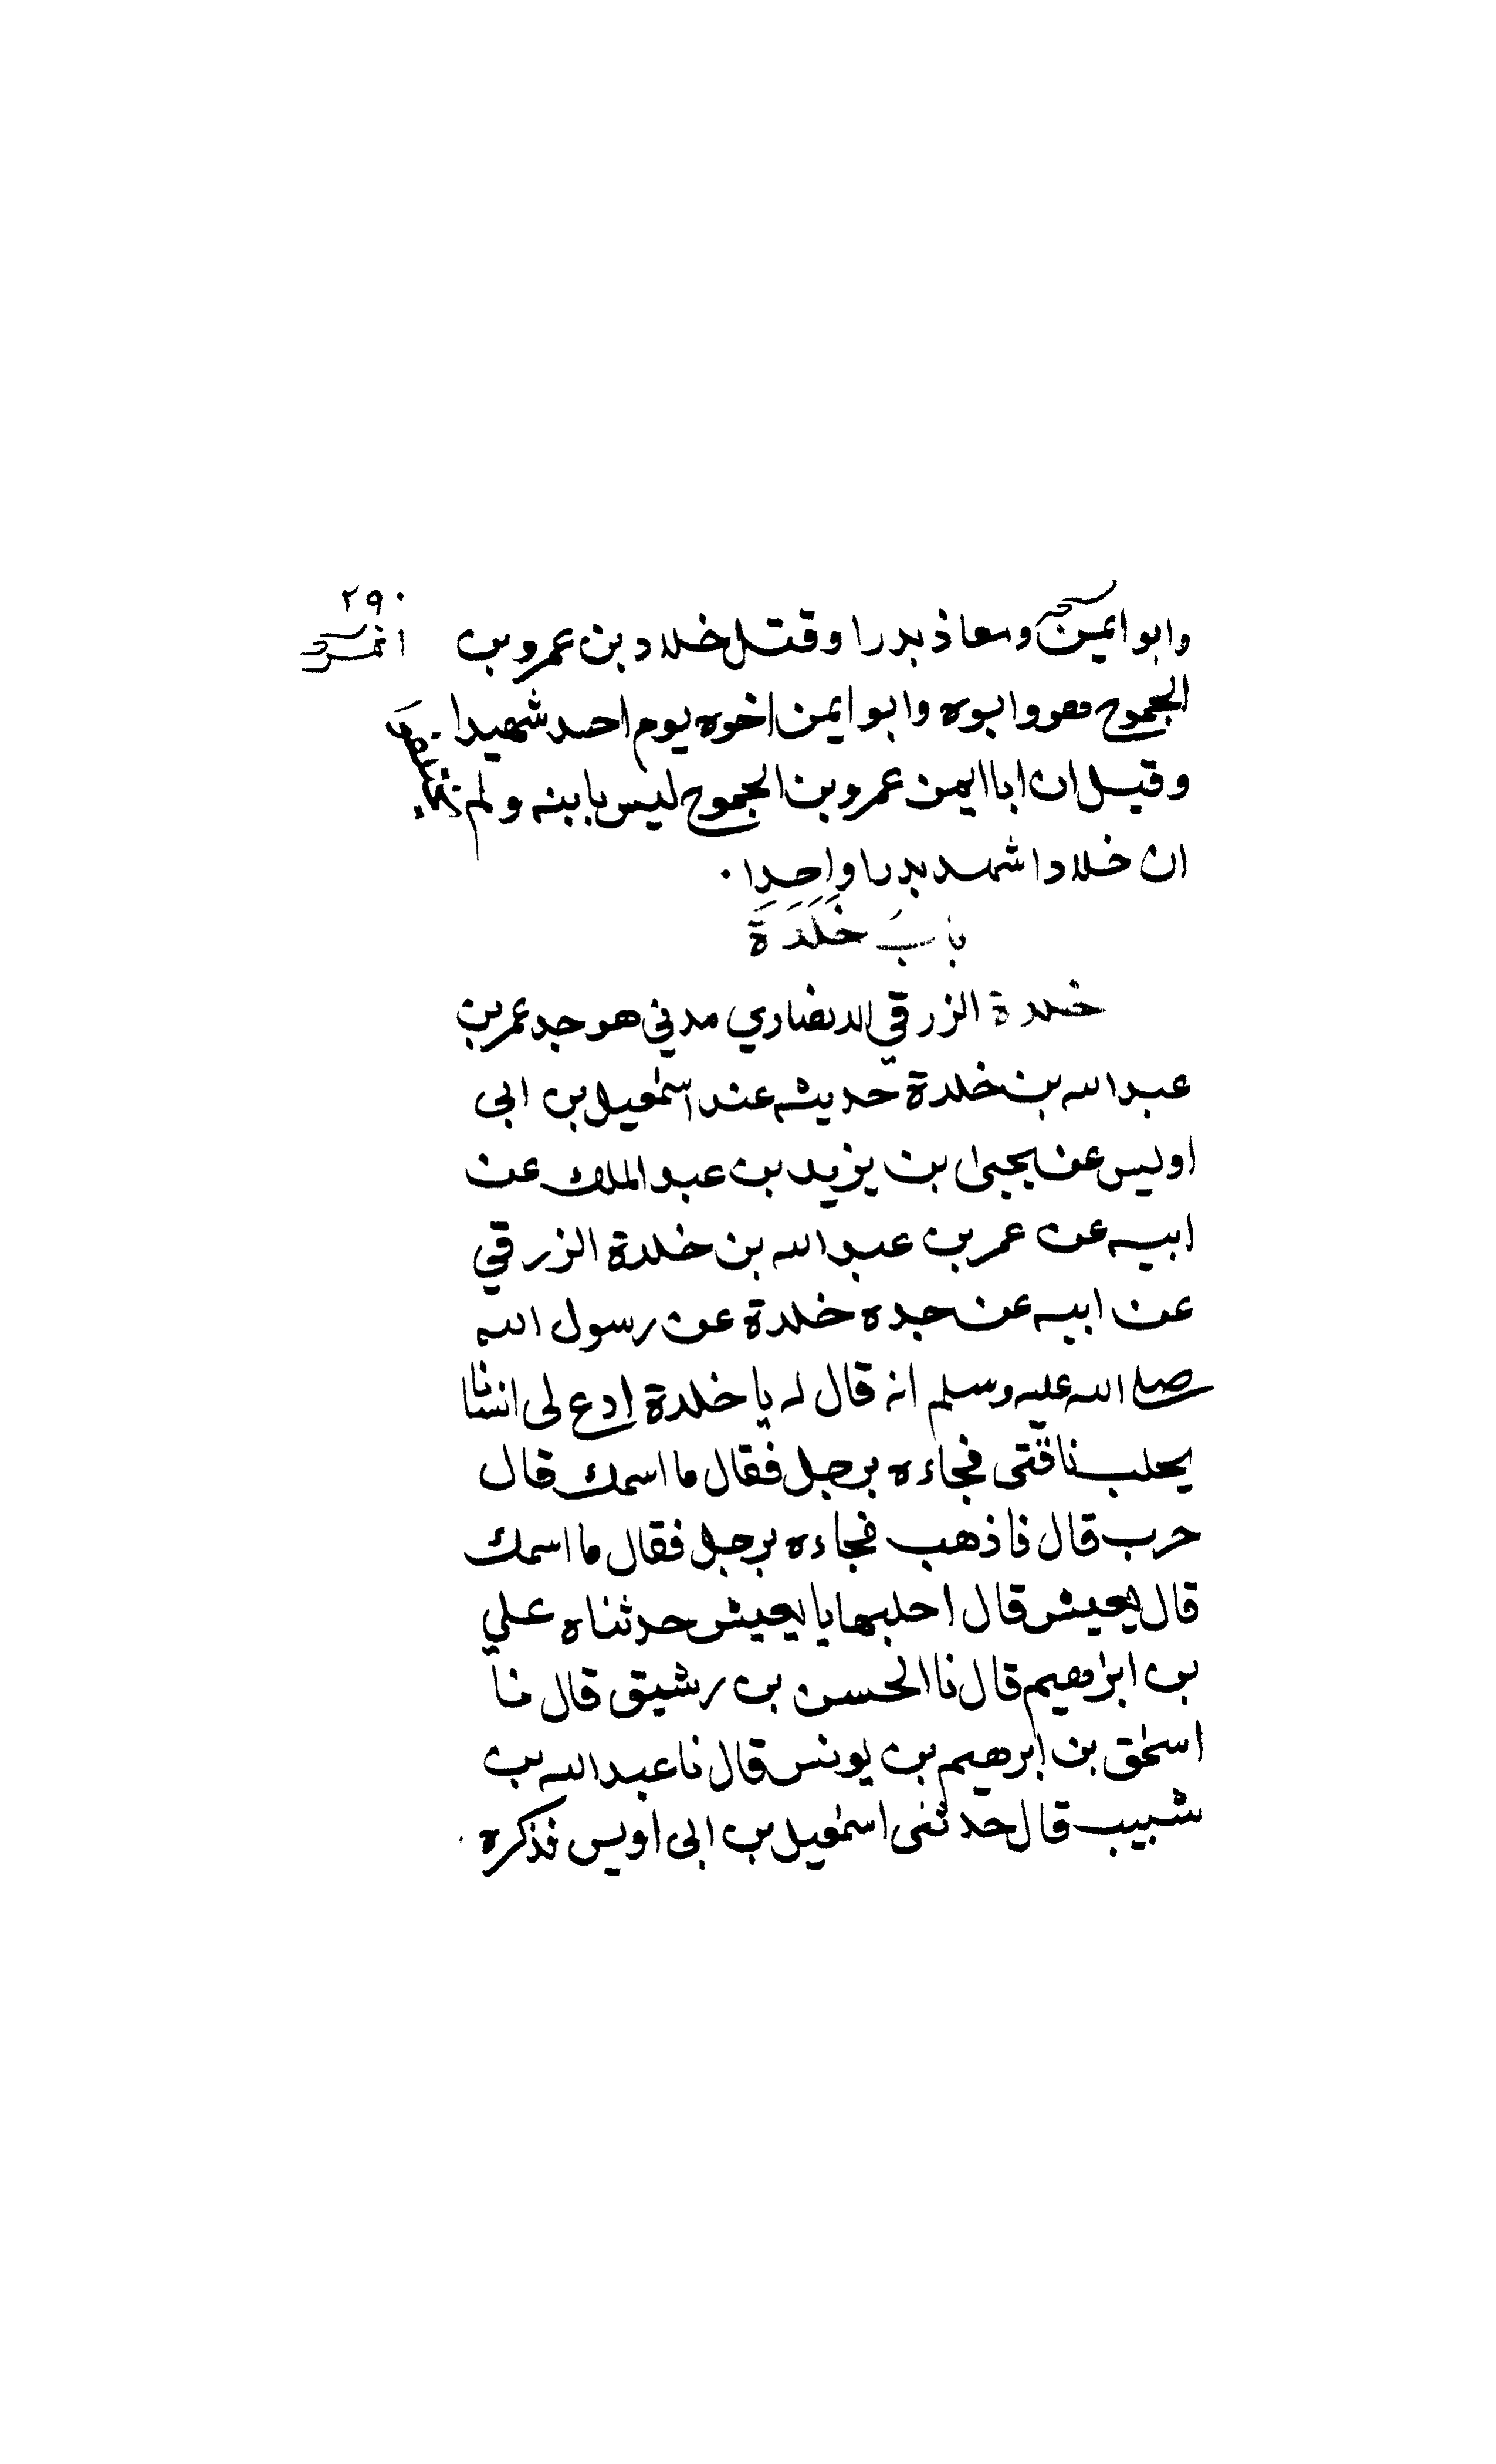 ٢٩٠
وابو ايمن ومعاذ بدرا وقتل خلاد بن عمرو بن
الجموح هو وابوه وابو ايمن اخوه يوم احد شهيدا
وقيل ان ابا ايمن عمرو بن الجموح ليس بابنه ولم
ان خلادا شهد بدرا واحدا .
باب خَلَدَة
خلدة الزرقي الانصاري مدني هو جد عمر بن
عبد الله بن خلدة حديثه عند اسمعيل بن ابى
اويس عن يحيى بن يزيد بن عبد الملك عن
ابيه عن عمر بن عبد الله بن خلدة الزرقي
عن ابيه عن جده خلدة عن رسول الله
صلى الله عليه وسلم انه قال له يا خلدة ادع لى انسانا
يحلب ناقتى فجاءه برجل فقال ما اسمك قال
حرب قال فاذهب فجاءه برجل فقال ما اسمك
قال يعيش قال احلبها يا يعيش حدثناه علي
بن ابرهيم قال نا الحسن بن رشيق قال نا
اسحق بن ابرهيم بن يونس قال نا عبد الله بن
شبيب قال حدثنى اسمعيل بن ابى اويس فذكره